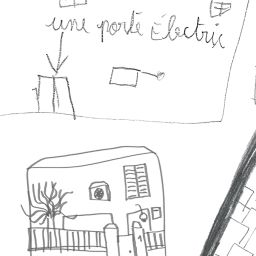 une porte Électric